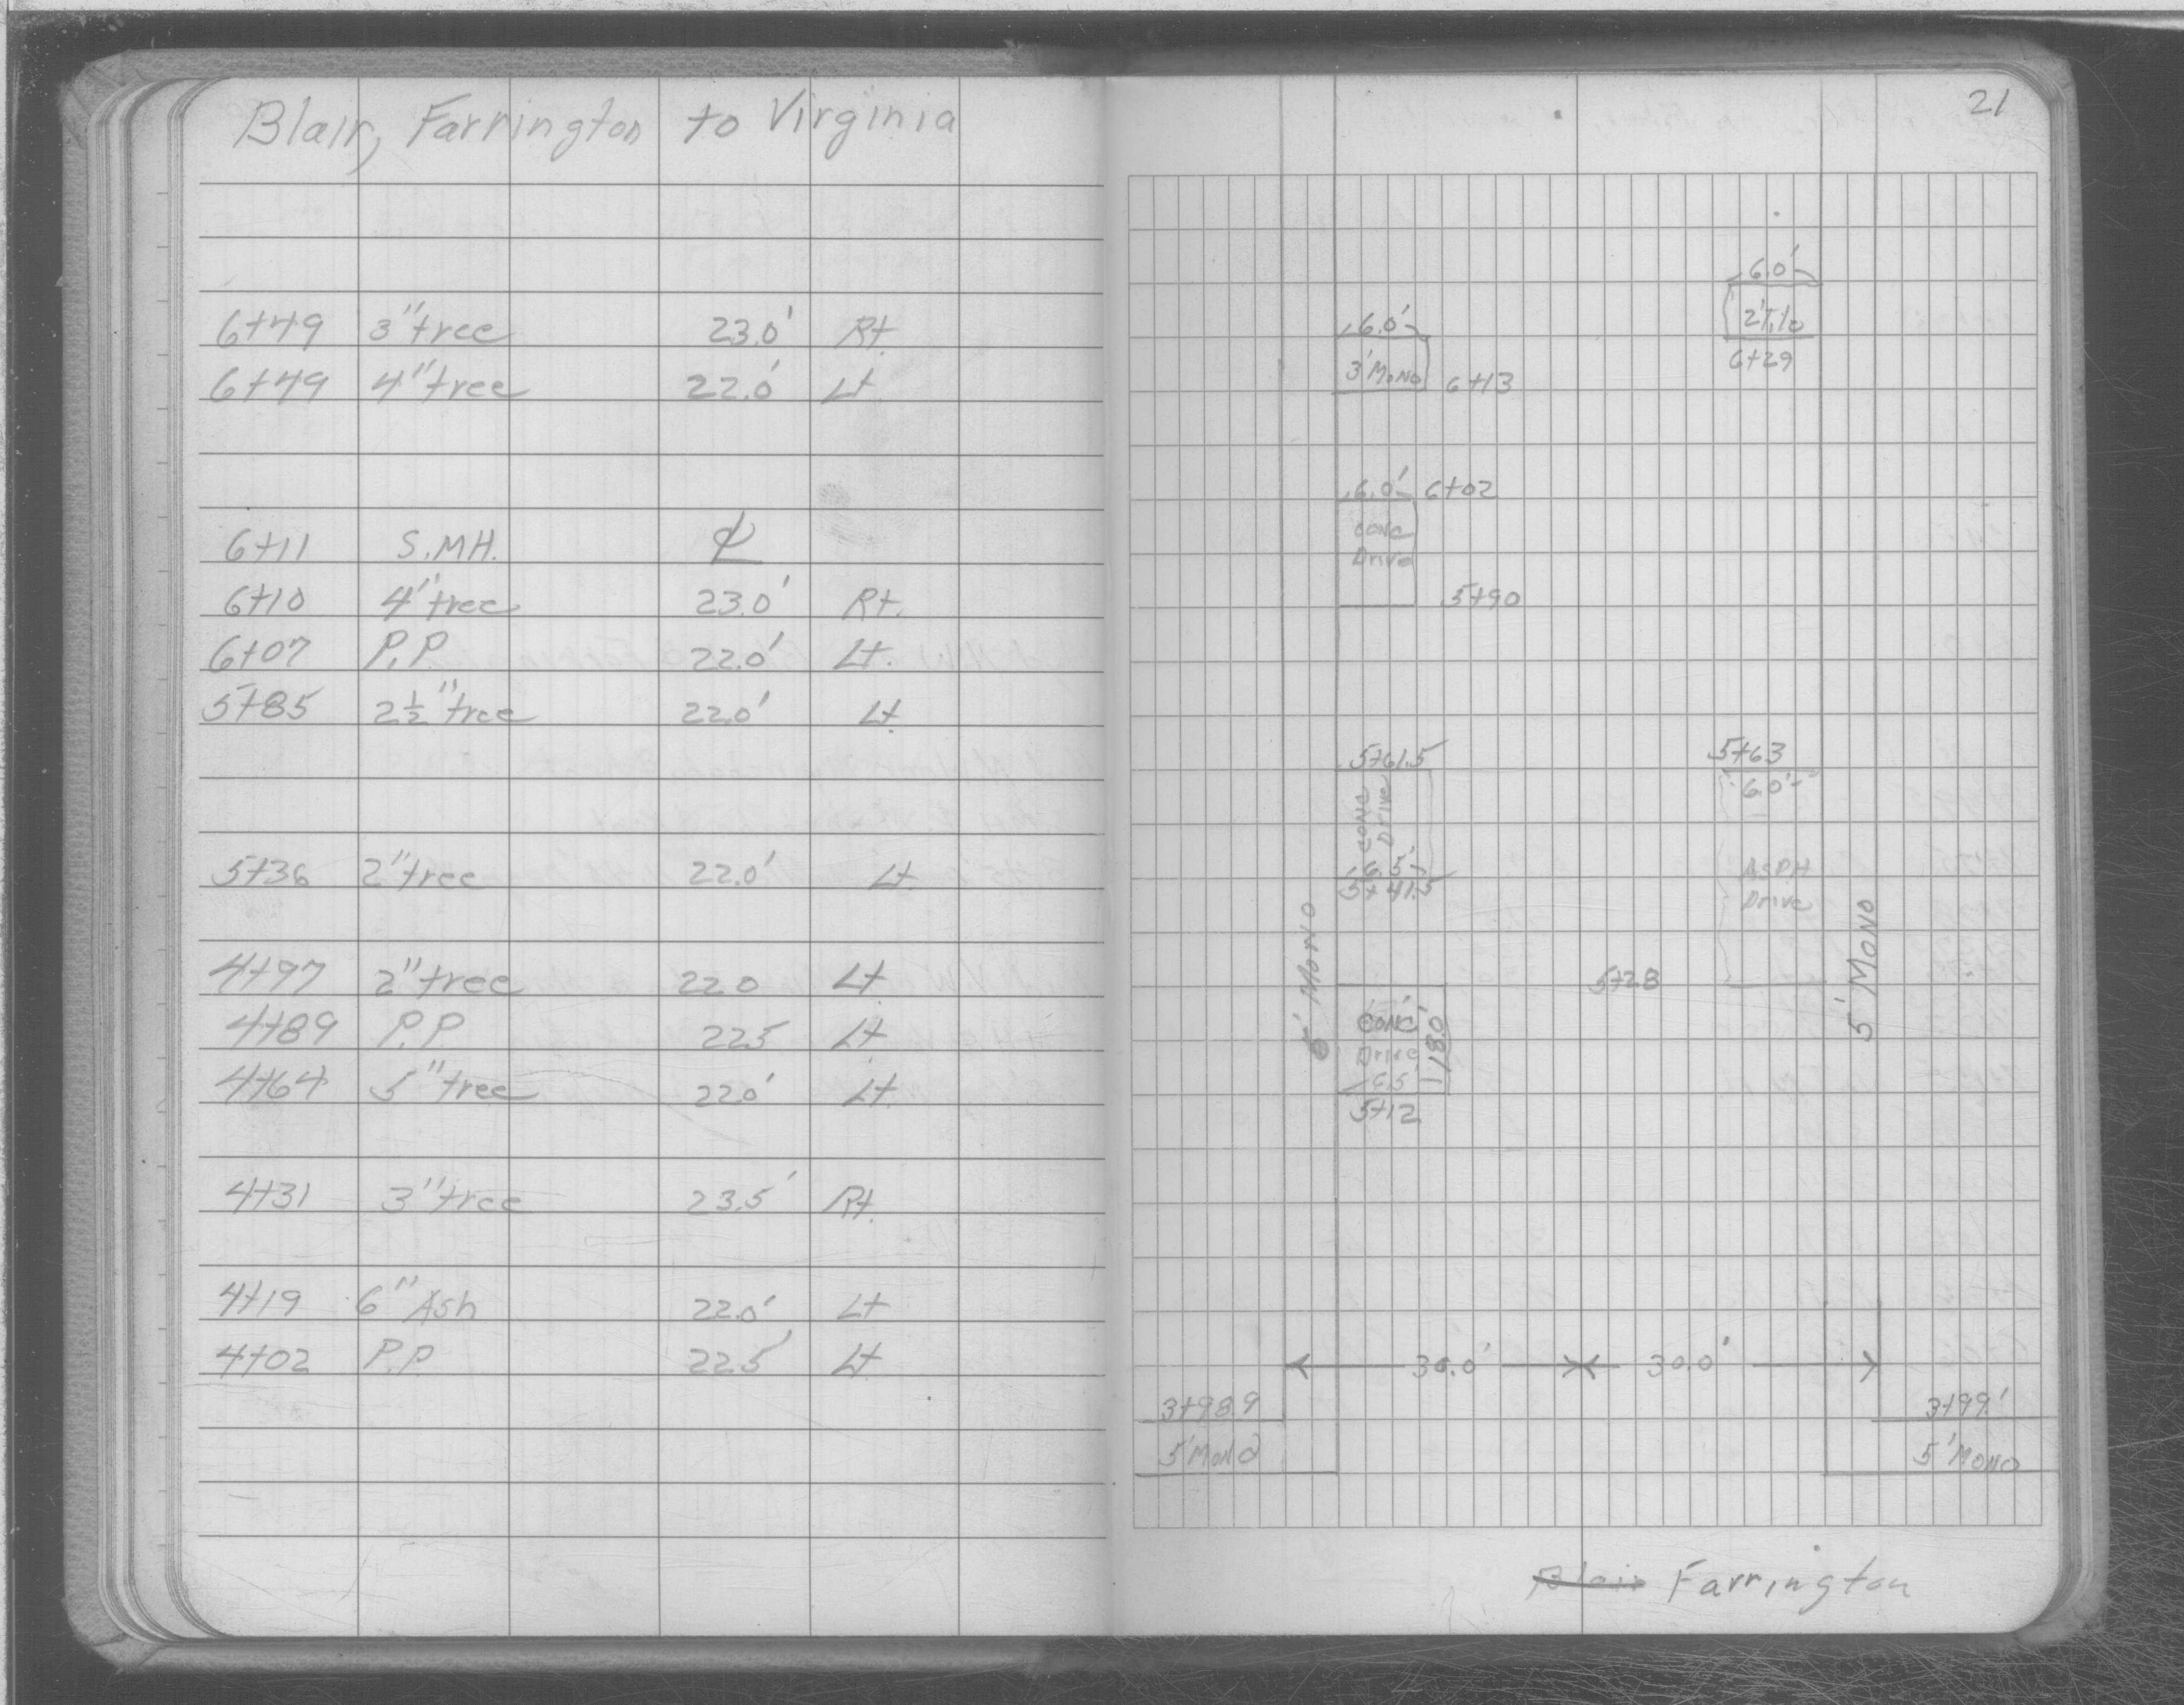 Blair, Farrington to Virginia
6+49 3" tree 23.0' Rt.
6+49 4" tree 22.0' Lt.
6+11 S.M.H. ℄
6+10 4" tree 23.0' Rt.
6+07 P.P. 22.0' Lt.
5+85 2½" tree 22.0' Lt.
5+36 2" tree 22.0' Lt.
4+97 2" tree 22.0 Lt.
4+89 P.P 22.5 Lt.
4+64 5" tree 22.0' Lt.
4+31 3" tree 23.5' Rt.
4+19 6" Ash 22.0' Lt
4+02 P.P 22.5' Lt.
21
6.0'
6+29
6.0'
3' MONO 6+13
6.0' 6+02
CONC
Drive
5+90
5+61.5
CONC
Drive
6.5'
5+41.5
5+63
6.0'
ASPH
Drive
5+28
5' MONO
5' MONO
CONC
Drive
18.0'
6.5'
5+12
30.0' 30.0'
3+98.9
5' MONO
3+99'
5' MONO
Blair Farrington